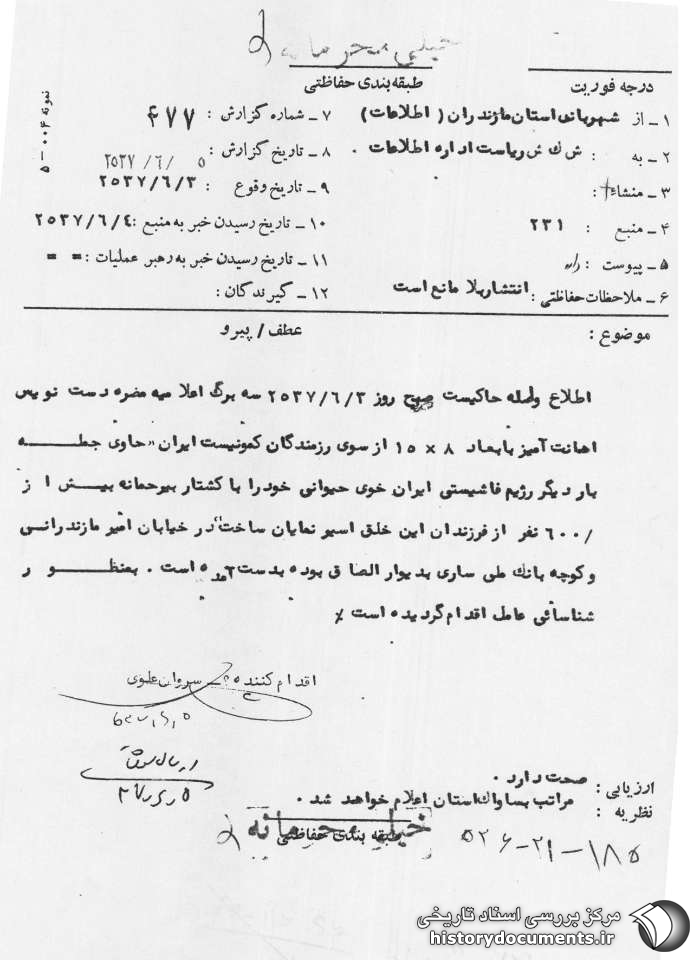 خیلی محرمانه
طبقه‌بندی حفاظتی
درجه فوریت
نمونه ۰۰۴ – ۵
۱ – از شهربانی استان مازندران ( اطلاعات )
۷ – شماره گزارش : ۶۷۷
۲ – به : ش ک ش ریاست اداره اطلاعات .
۸ – تاریخ گزارش : ۵ /۶/ ۲۵۳۷
۳ – منشاء :
۹ – تاریخ وقوع : ۲۵۳۷/۶/۳
۴ – منبع : ۲۳۱
۱۰ – تاریخ رسیدن خبر به منبع : ۲۵۳۷/۶/۴
۵ – پیوست : دارد
۱۱ – تاریخ رسیدن خبر به رهبر عملیات : = =
۶ – ملاحظات حفاظتی : انتشار بلا مانع است
۱۲ – گیرندگان :
موضوع :
عطف / پیرو
اطلاع واصله حاکیست صبح روز ۲۵۳۷/۶/۳ سه برگ اعلامیه مضره دست نویس
اهانت آمیز با بعاد ۸ × ۱۵ از سوی رزمندگان کمونیست ایران "حاوی جمله
بار دیگر رژیم فاشیستی ایران خوی حیوانی خود را با کشتار بیرحمانه بیش از
/۶۰۰ نفر از فرزندان این خلق اسیر نمایان ساخت" در خیابان امیر مازندرانی
و کوچه بانک ملی ساری بدیوار الصاق بوده بدست آمده است . بمنظور
شناسائی عامل اقدام گردیده است ٪
اقدام کننده – سروان علوی
۵ / ۶ / ۳۷
ارزیابی : صحت دارد .
نظریه : مراتب بساواک استان اعلام خواهد شد .
خیلی محرمانه
طبقه بندی حفاظتی
۵۲۶-۲۱-۱۸۵
مرکز بررسی اسناد تاریخی
historydocuments.ir